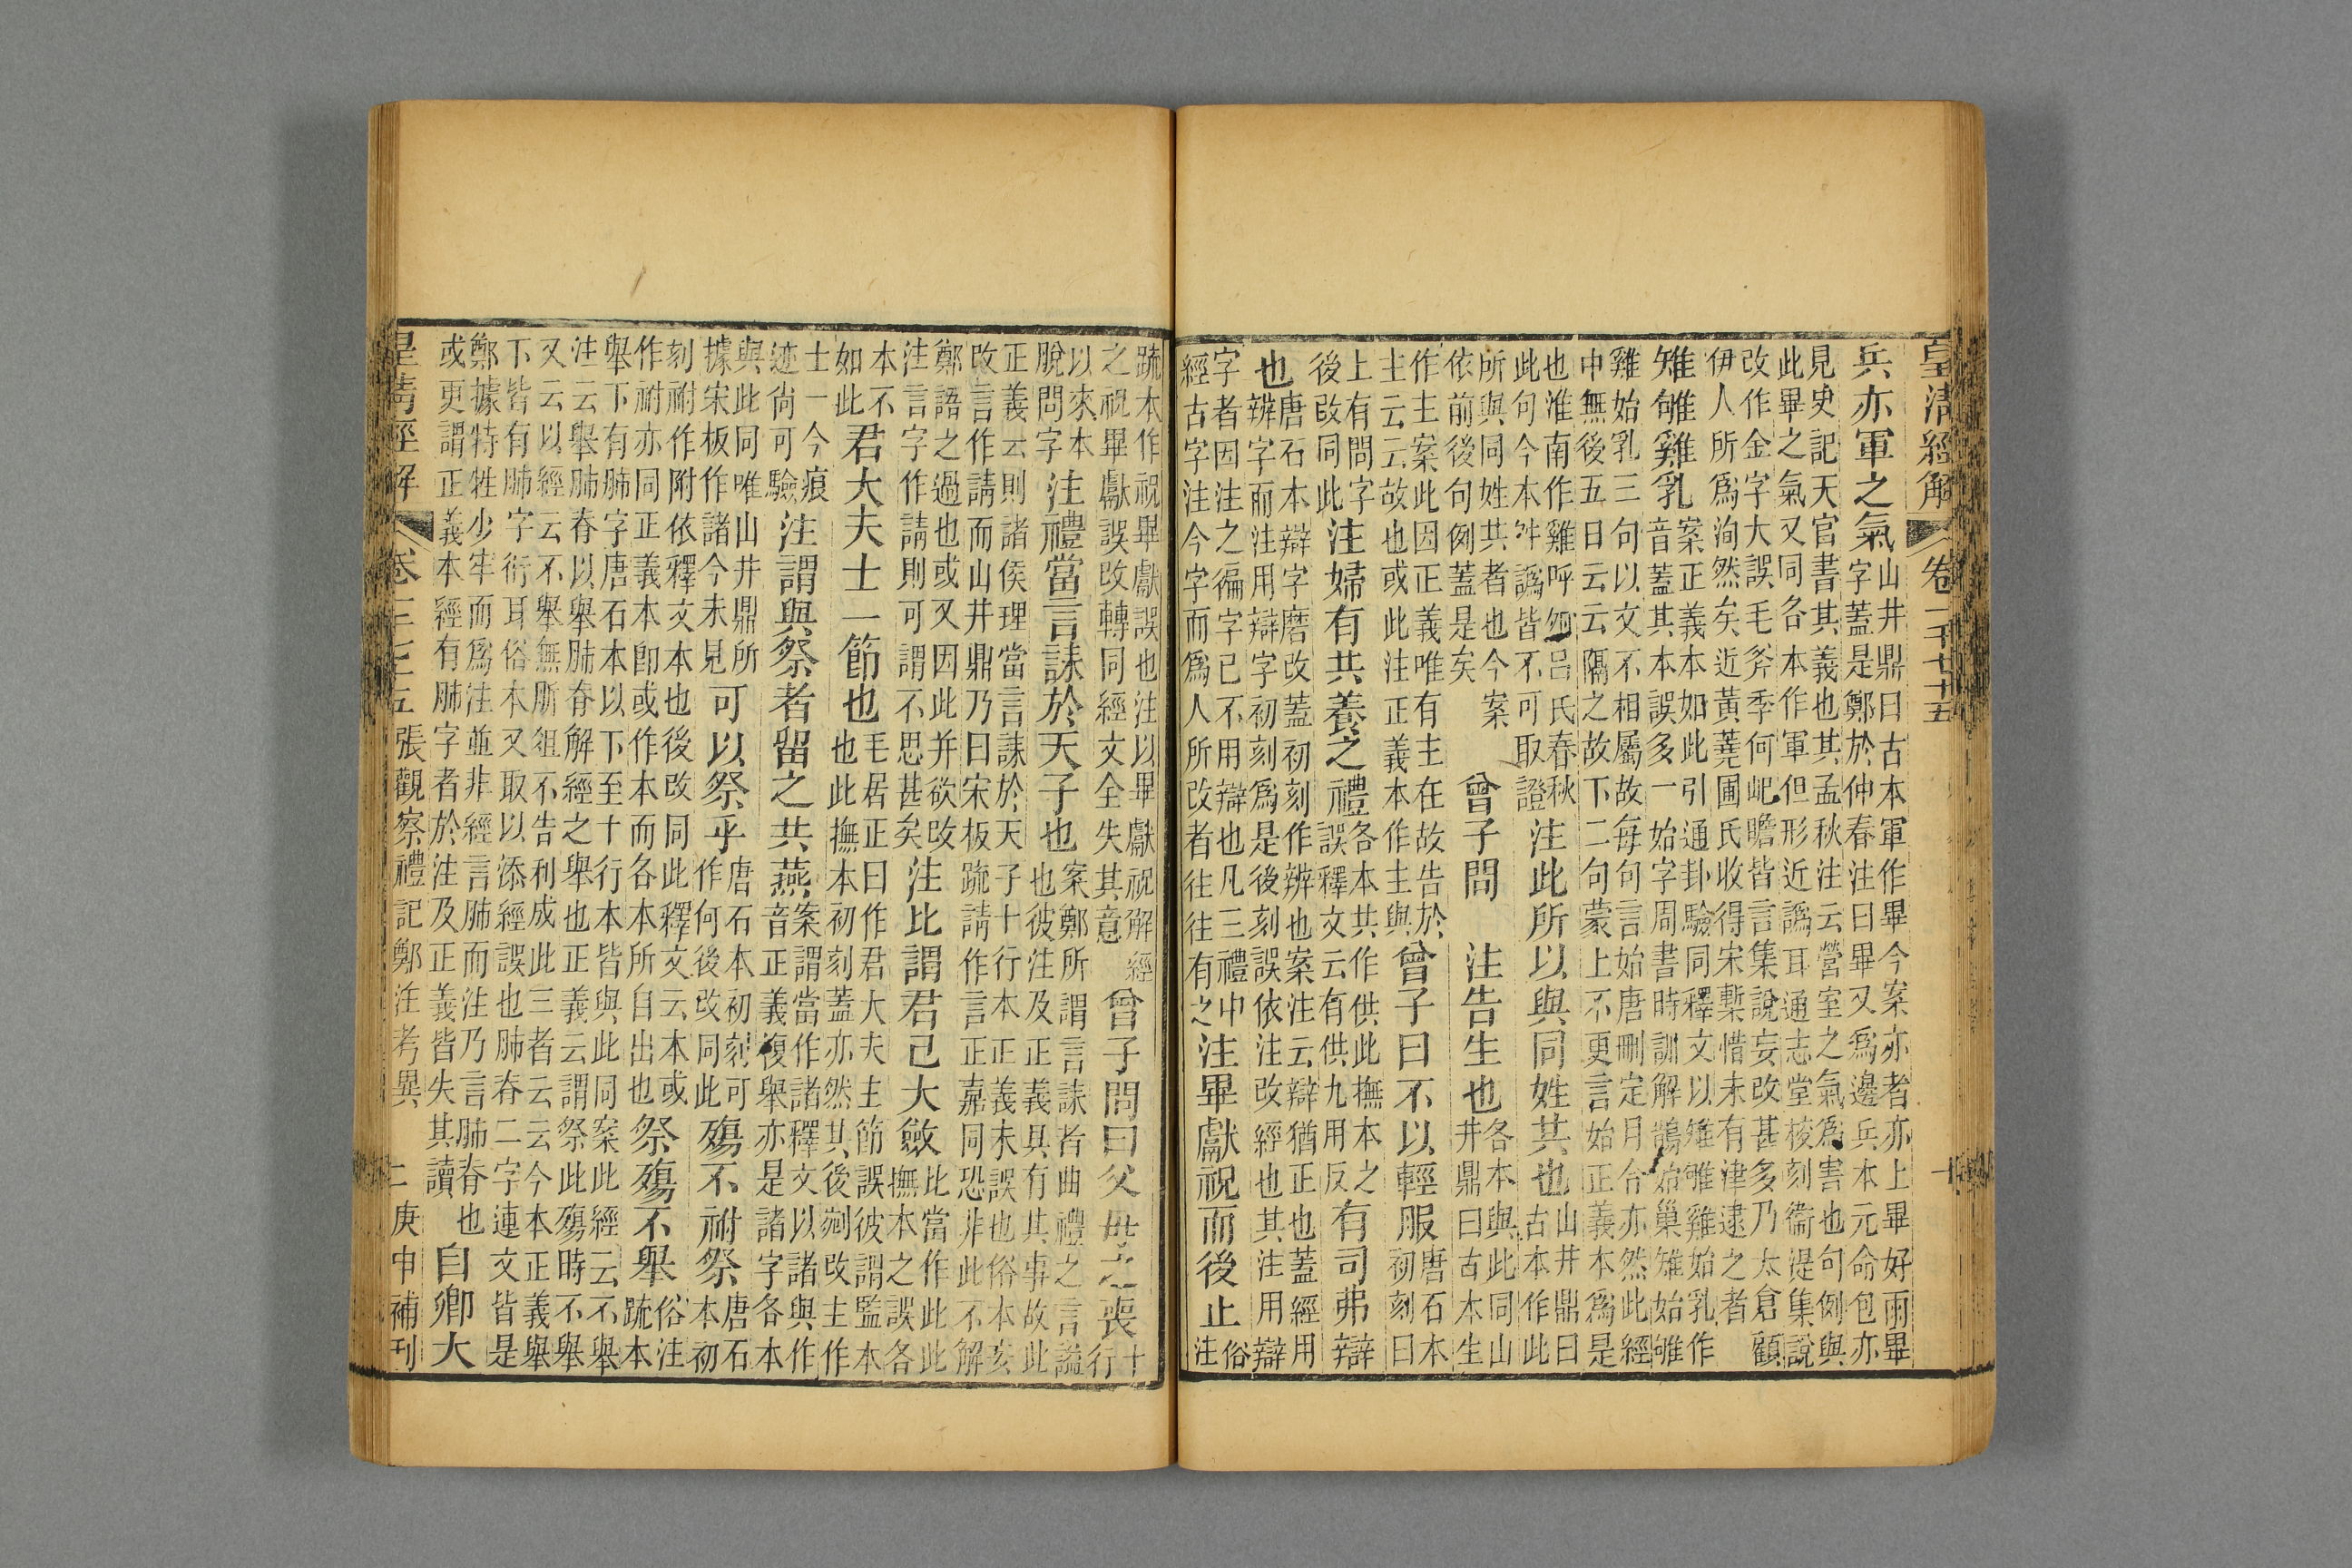 皇清經解 卷一千七十五 十
兵亦軍之氣
山井鼎曰古本軍作畢今案亦者亦上畢好雨畢
字蓋是鄭於仲春注曰畢又爲邊兵本元命包亦
見史記天官書其義也其孟秋注云營室之氣爲害也句例與
此畢之氣又同各本作軍但形近譌耳通志堂梭刻衞湜集說
改作金字大誤毛斧季何屺瞻皆言集說妄改甚多乃太倉顧
伊人所爲洵然矣近黃蕘圃氏收得宋槧惜未有津逮之者
雉雊雞乳
案正義本如此引通卦驗同釋文以雉雊雞始乳作
音蓋其本誤多一始字周書時訓解鵲始巢雉始雊
雞始乳三句以文不相屬故每句言始唐刪定月令亦然此經
中無後五日云云隔之故下二句蒙上不更言始正義本爲是
也淮南作雞呼卵呂氏春秋
此句今本舛譌皆不可取證
注此所以與同姓共也
山井鼎曰
古本作此
所與同姓共者也今案
依前後句例蓋是矣
曾子問
注告生也
各本與此同山
井鼎曰古本生
作主案此因正義唯有主在故告於
主云云故也或此注正義本作主與
曾子曰不以輕服
唐石本
初刻曰
上有問字
後改同此
注婦有共養之禮
各本共作供此撫本之
誤釋文云有供九用反
有司弗辯
也
唐石本辯字磨改蓋初刻作辨也案注云辯猶正也蓋經用
辨字而注用辯字初刻爲是後刻誤依注改經也其注用辯
字者因注之徧字已不用辯也凡三禮中
經古字注今字而爲人所改者往往有之
注畢獻祝而後止
俗
注
疏本作祝畢獻誤也注以畢獻祝解經
之祝畢獻誤改轉同經文全失其意
曾子問曰父母之喪
十
行
以來本
脫問字
注禮當言誄於天子也
案鄭所謂言誄者曲禮之言謚
也彼注及正義具有其事故此
正義云則諸侯理當言誄於天子十行本正義未誤也俗本亥
改言作請而山井鼎乃曰宋板疏請作言正嘉同恐非此不解
鄭語之過也或又因此并欲改
注言字作請則可謂不思甚矣
注比謂君已大斂
比當作此此
撫本之誤各
本不
如此
君大夫士一節也
毛居正曰作君大夫主節誤彼謂監本
也此撫本初刻蓋亦然其後剜改主作
士一今痕
迹尚可驗
注謂與祭者留之共燕
案謂當作諸釋文以諸與作
音正義復舉亦是諸字各本
與此同唯山井鼎所
據宋板作諸今未見
可以祭乎
唐石本初刻可
作何後改同此
殤不祔祭
唐石
本初
刻祔作附依釋文本也後改同此釋文云本或
作祔亦同正義本卽或作本而各本所自出也
祭殤不舉
俗注
疏本
舉下有肺字唐石本以下至十行本皆與此同案此經云不舉
注云舉肺脊以舉肺脊解經之舉也正義云謂祭此殤時不舉
又云以經云不舉無肵俎不告利成此三者云云今本正義舉
下皆有肺字衍耳俗本又取以添經誤也肺脊二字連文皆是
鄭據特牲少牢而爲注並非經言肺而注乃言肺脊也
或更謂正義本經有肺字者於注及正義皆失其讀
自卿大
皇清經解 卷 張觀察禮記鄭注考異 庚申補刊